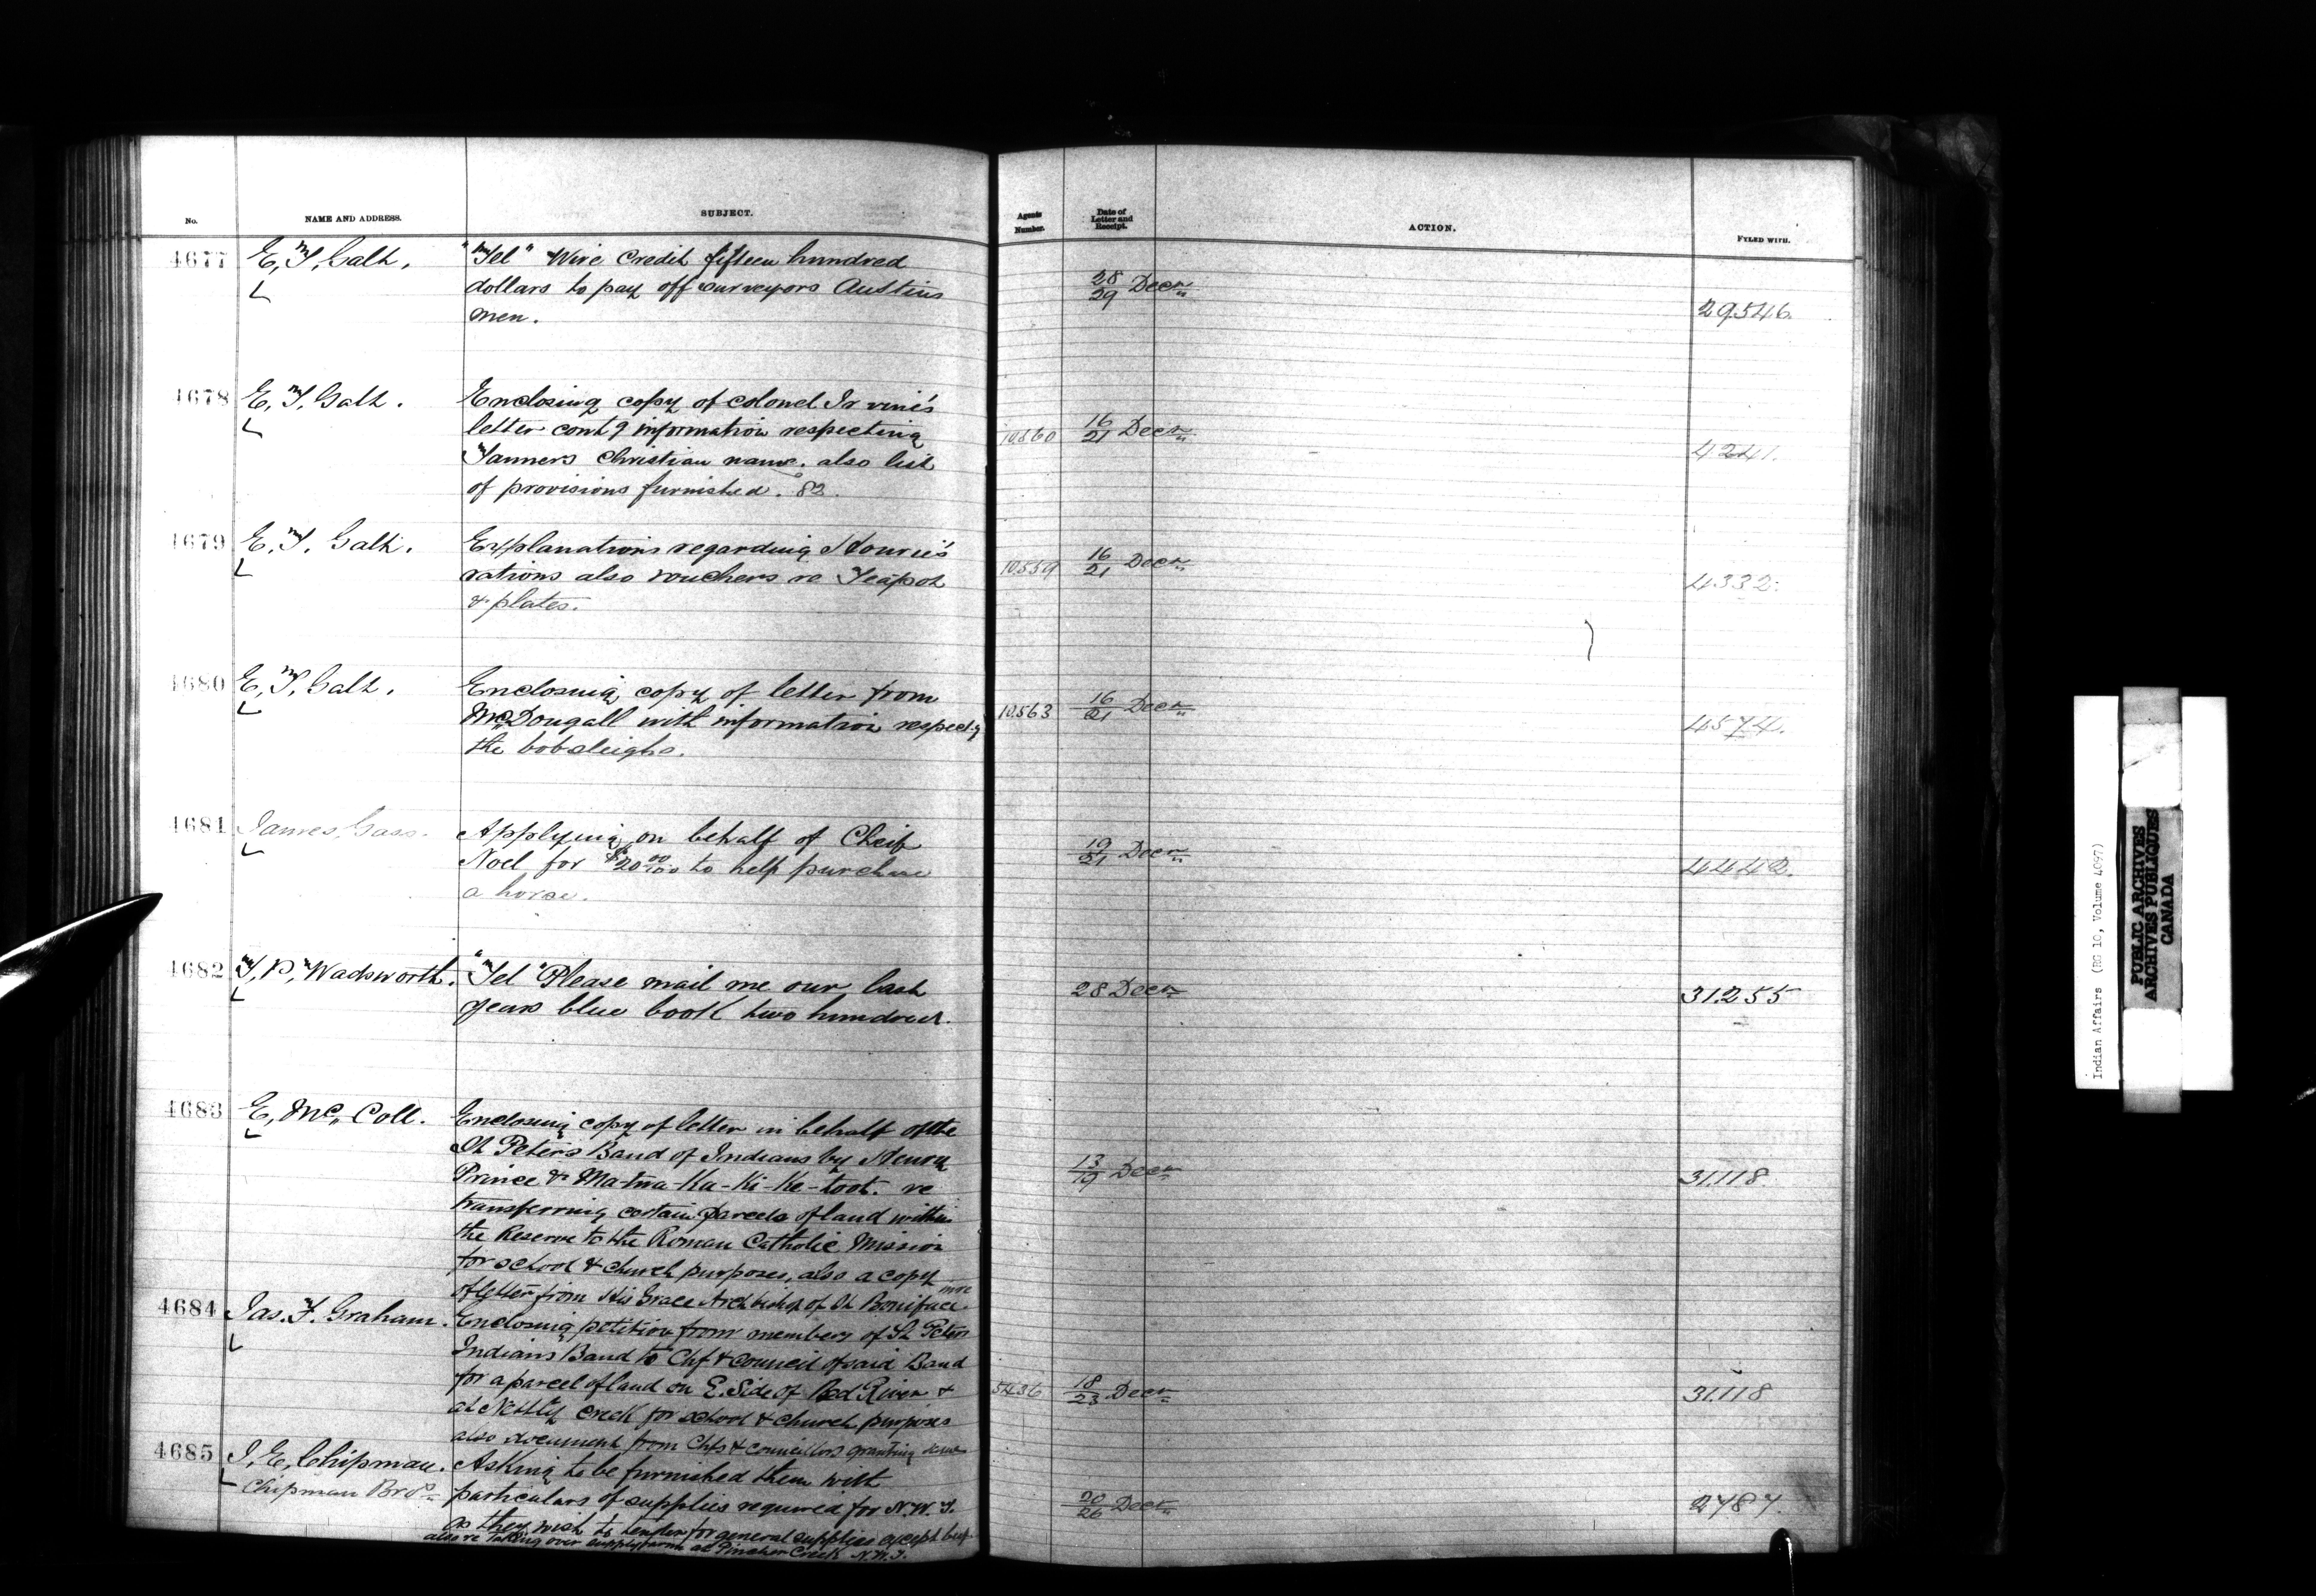 No. NAME AND ADDRESS. SUBJECT. Agents Number. Date of Letter and Receipt. ACTION. FYLED WITH.
4677 E. T. Galt. "Tel" Wire Credit fifteen hundred
dollars to pay off surveyors Austins 28/29 Decr
men. 29546.
4678 E. T. Galt. Enclosing copy of Colonel Irvine's
letter contg information respecting 16/21 Decr
Tanners Christian name. also list 4241.
of provisions furnished. 82.
4679 E. T. Galt. Explanations regarding Hourie's
rations also vouchers re Teapot 10559 16/21 Decr 4332.
& plates.
4680 E. T. Galt. Enclosing copy of letter from
McDougall with information respectg 10563 16/21 Decr 4574.
the bobsleighs.
4681 James Gass. Applying on behalf of Cheif
Noel for $20 00/100 to help purchase 19/21 Decr 4442.
a horse.
4682 T. P. Wadsworth. "Tel" Please mail me our last 28 Decr 31.255
years blue book two hundred.
4683 E. Mc. Coll. Enclosing copy of letter in behalf of the
St Peters Band of Indians by Henry
Prince & Ma-twa-Ka-Ki-Ke-toot. re 13/19 Decr 31.118.
transferring certain parcels of land within
the Reserve to the Roman Catholic Mission
for school & church purposes, also a copy
of letter from His Grace Archbishop of St Boniface
4684 Jas. F. Graham. Enclosing petition from members of St Peters
Indians Band to Chf & Council of said Band
for a parcel of land on E. Side of Red River & 5436 18/23 Decr 31.118
at Nettly Creek for school & church purposes
also document from Chfs & Councillors granting same
4685 J. E. Chipman. Asking to be furnished them with
Chipman Bros particulars of supplies required for N.W.T. 20/26 Decr 2787.
as they wish to tender for general supplies except beef
also re taking over supply farm at Pincher Creek N.W.T.
Indian Affairs (RG 10, Volume 4097)
PUBLIC ARCHIVES
ARCHIVES PUBLIQUES
CANADA